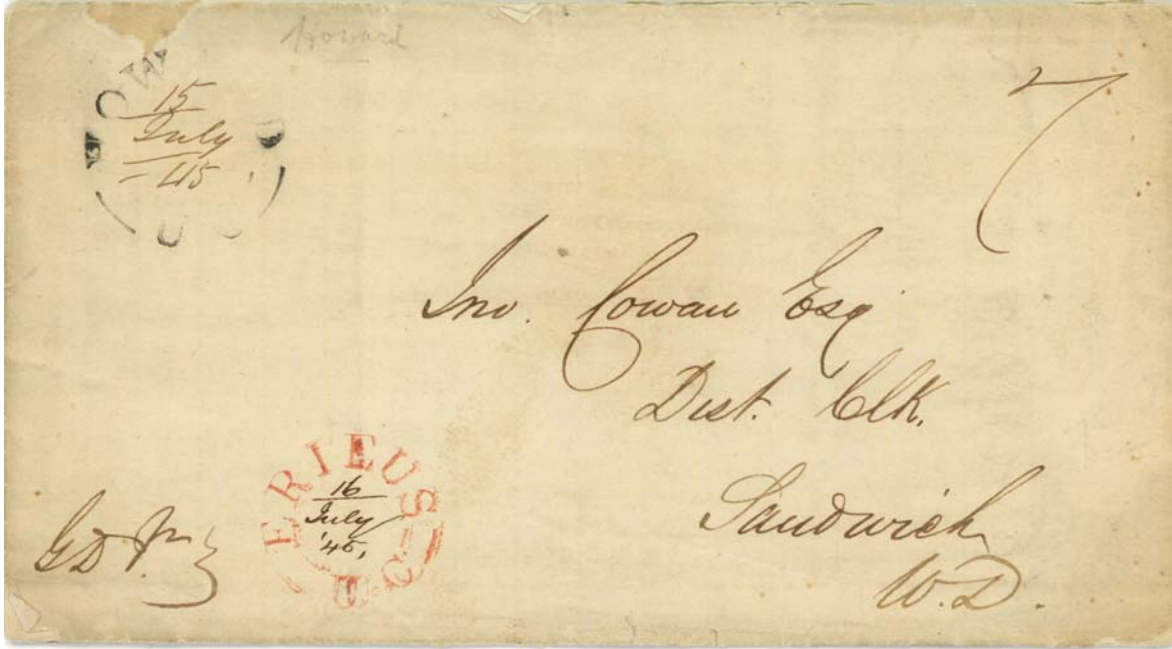 Howard
OW D
15
July
45
U
7
Jno. Cowan Esq
Dist. Clk.
Sandwich
W.D.
ERIEUS
16
July
'45,
U.C
G D